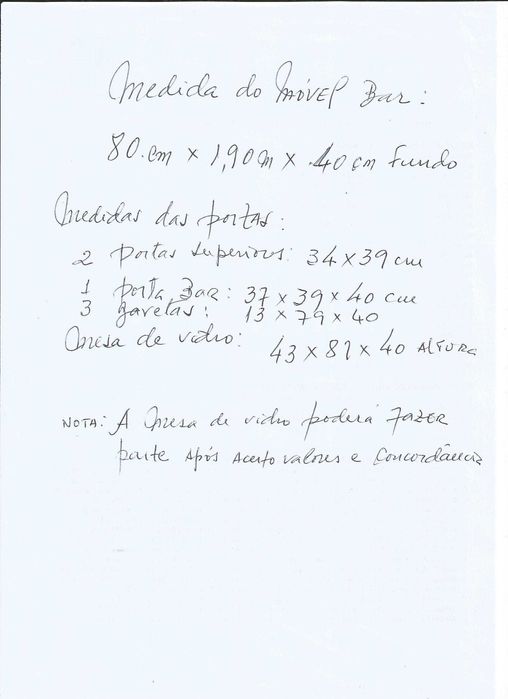 Medida do MÓVEL Bar:
80.cm x 1,90m x 40cm Fundo
Medidas das portas:
2 Portas superiores: 34x39cm
1 porta Bar: 37x39x40 cm
3 gavetas: 13x79x40
Mesa de vidro: 43x81x40 ALTURA
NOTA: A Mesa de vidro poderá FAZER
parte após acerto valores e Concordância